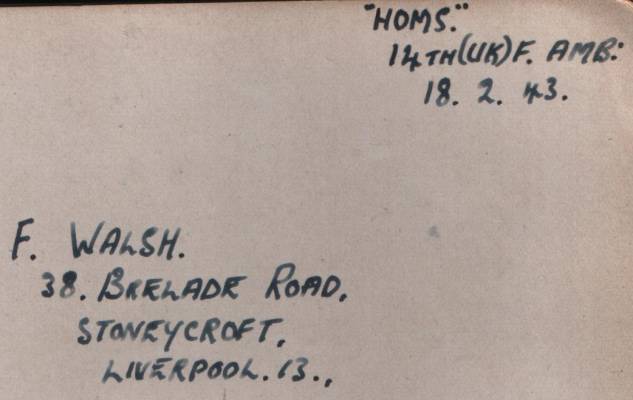 "HOMS."
14TH (UK) F. AMB:
18. 2. 43.
F. WALSH.
38. BRELADE ROAD,
STONEYCROFT,
LIVERPOOL. 13.,